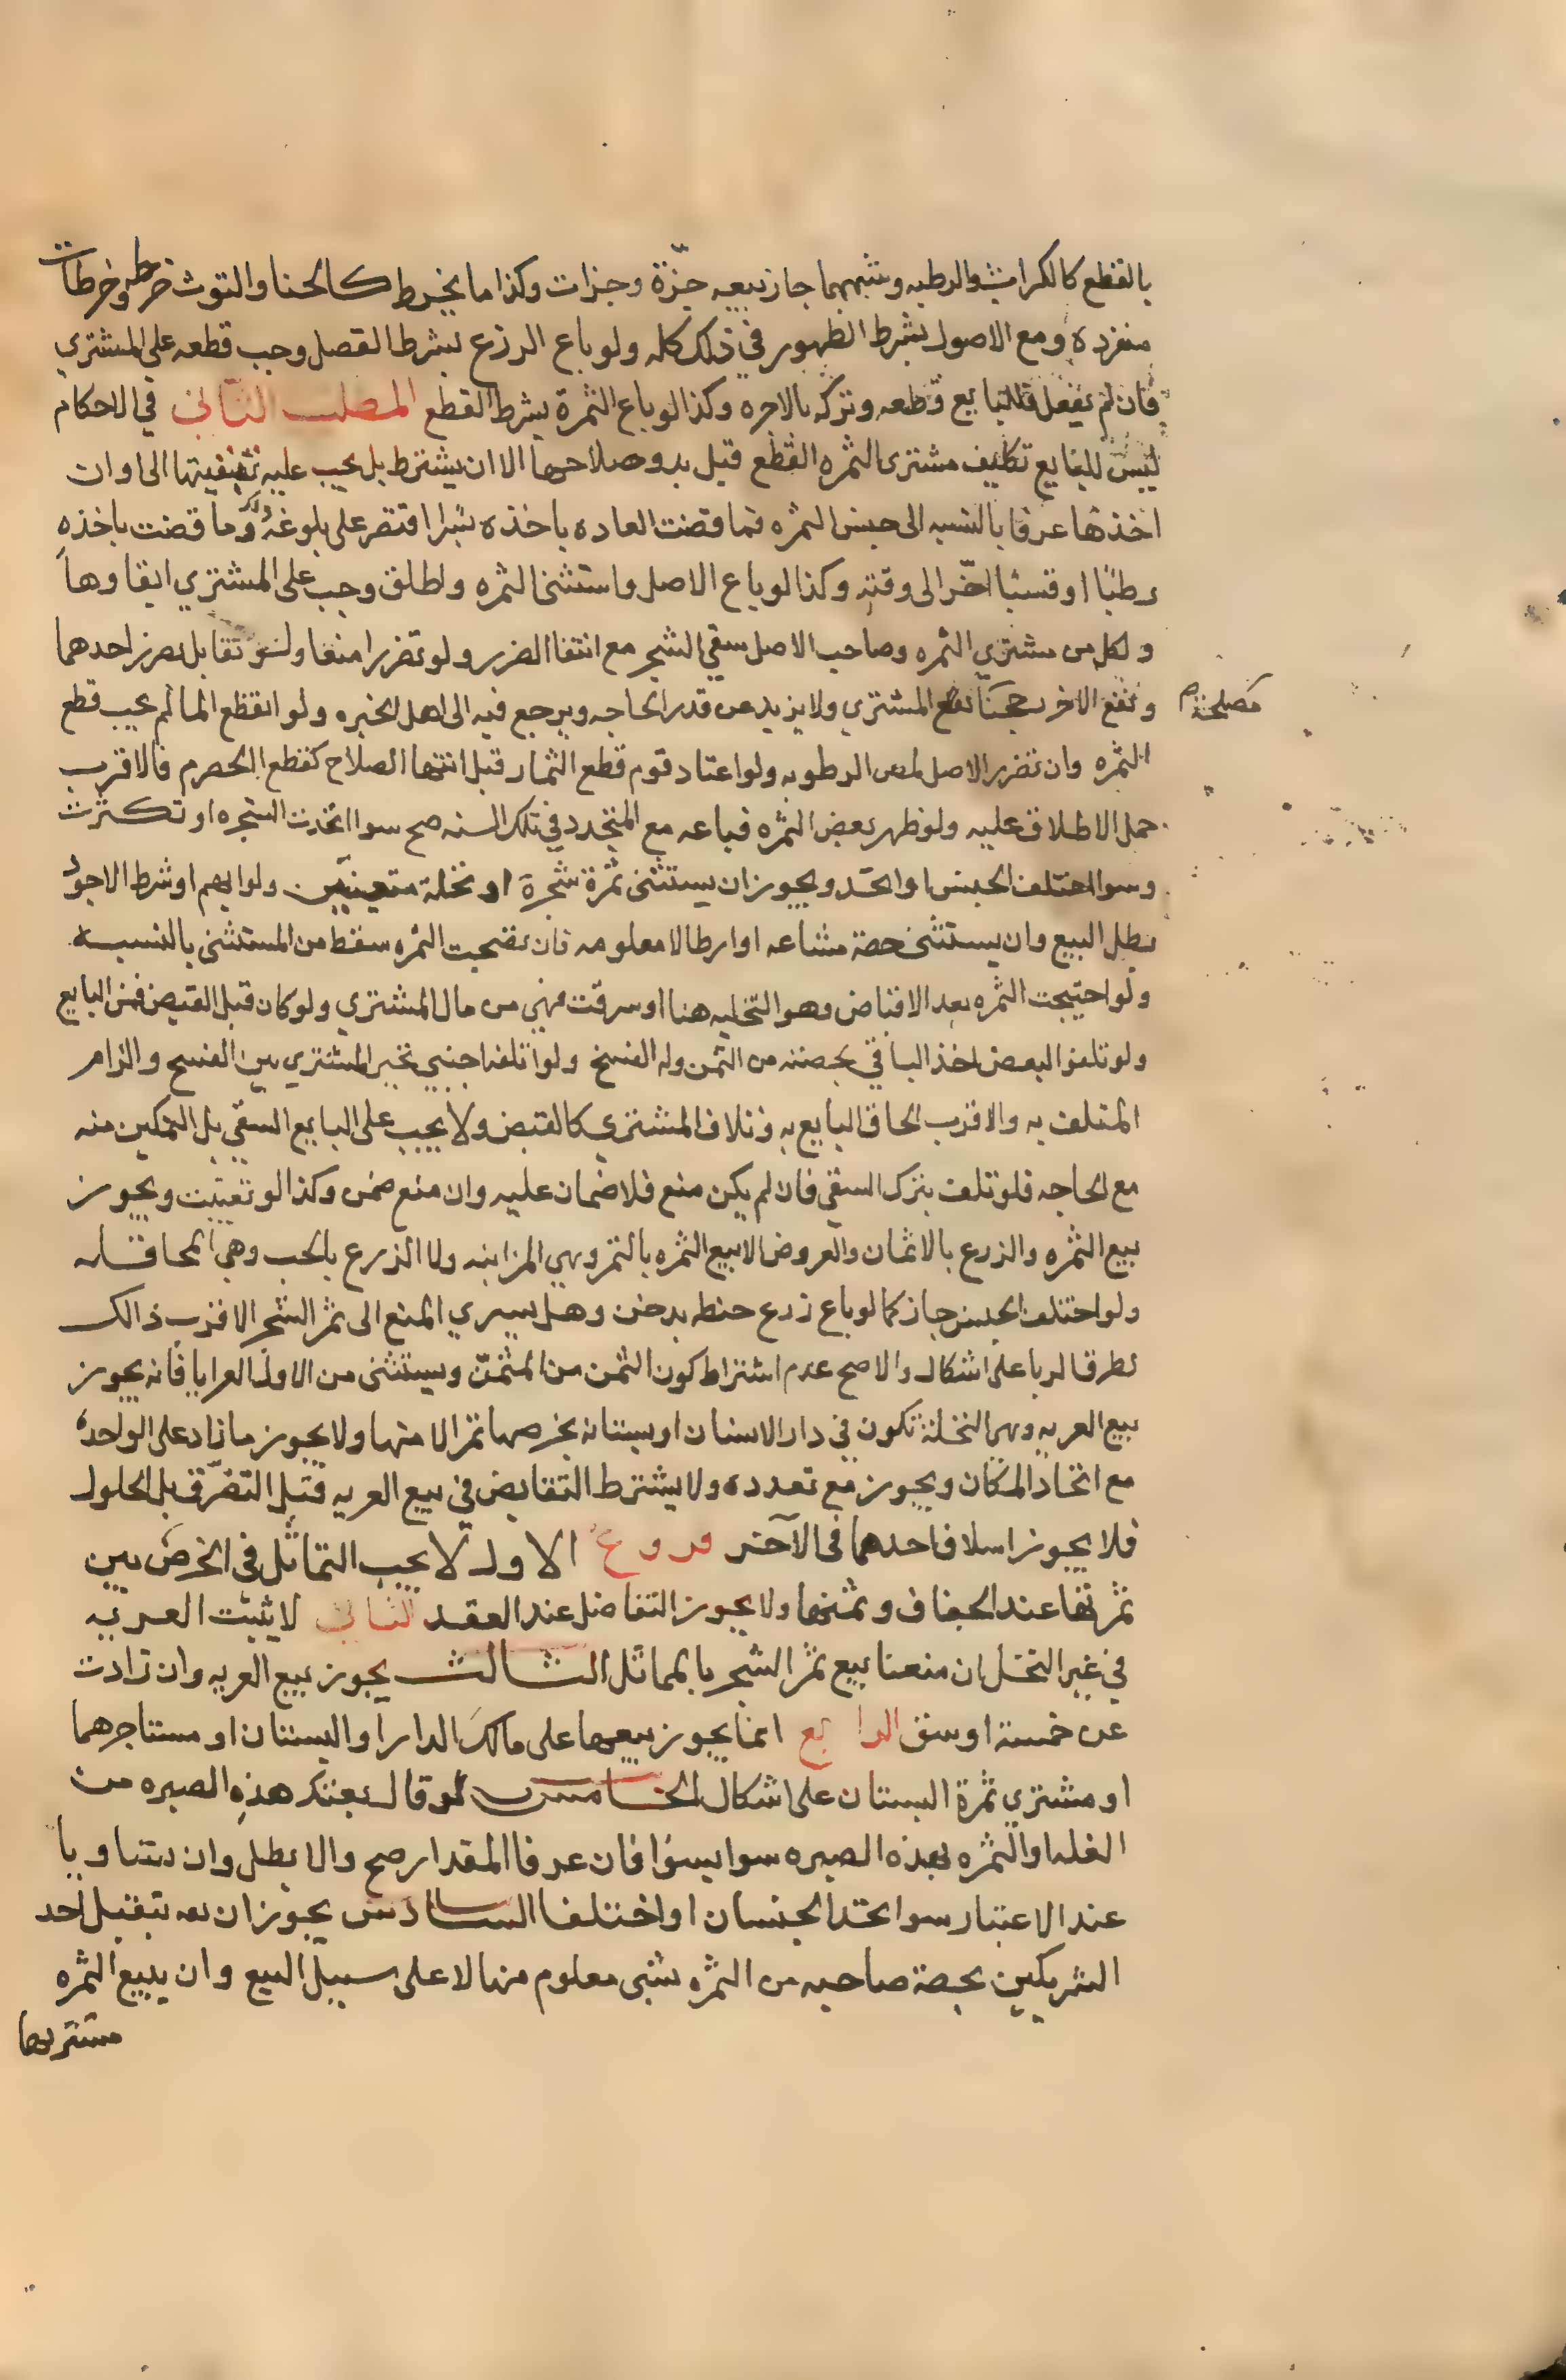 بالقطع كالكراث والرطبه وشبههما جاز بيعه جزّة وجزات وكذا ما يخرط كالحنا والتوث خرطه وخرطات
منفرده ومع الاصول بشرط الظهور في ذلك كله ولو باع الزرع بشرط القصل وجب قطعه على المشتري
فان لم يفعل فللبايع قطعه وتركه بالاجره وكذا لو باع الثمرة بشرط القطع المطلب الثاني في الاحكام
ليس للبايع تكليف مشترى الثمره القطع قبل بدو صلاحها الا ان يشترط بل يجب عليه تبقيتها الى اوان
اخذها عرفا بالنسبه الى جنس الثمره فما قضت العاده باخذه بسرا اقتصر على بلوغه ذلك وما قضت باخذه
رطبا او قسبا اخّر الى وقته وكذا لو باع الاصل واستثنى الثمره واطلق وجب على المشتري ابقاوها
ولكل من مشتري الثمره وصاحب الاصل سقي الشجر مع انتفا الضرر ولو تضررا منعا ولو تقابل ضرر احدهما
ونفع الاخر رجحنا نفع المشتري ولا يزيد عن قدر الحاجه ويرجع فيه الى اهل الخبره ولو انقطع الما لم يجب قطع
مصلحة
الثمره وان تضرر الاصل بمص الرطوبه ولو اعتاد قوم قطع الثمار قبل انتها الصلاح كقطع الحصرم فالاقرب
حمل الاطلاق عليه ولو ظهر بعض الثمره فباعه مع المتجدد في تلك السنه صح سوا اتحدت الشجره او تكثرت
وسوا اختلف الجنس او اتحد ويجوز ان يستثنى ثمرة شجرة او نخلة متعينين ولو ابهم او شرط الاجود
بطل البيع وان يستثنى حصة مشاعه او ارطالا معلومه فان نضجت الثمره سقط من المستثنى بالنسبه
ولو اجتيحت الثمره بعد الاقباض وهو التخليه هنا او سرقت فهي من مال المشتري ولو كان قبل القبض فمن البايع
ولو تلف البعض اخذ الباقي بحصته من الثمن وله الفسخ ولو اتلفه اجنبي تخير المشتري بين الفسخ والزام
المتلف به والاقرب الحاق البايع به واتلاف المشتري كالقبض ولا يجب على البايع السقي بل التمكين منه
مع الحاجه فلو تلفت بترك السقي فان لم يكن منع فلا ضمان عليه وان منع ضمن وكذا لو تعيبت ويجوز
بيع الثمره والزرع بالاثمان والعروض الا بيع الثمره بالتمر وهي المزابنه ولا الزرع بالحب وهي المحاقله
ولو اختلف الجنس جاز كما لو باع زرع حنطه بدخن وهل يسري المنع الى ثمر الشجر الاقرب ذالك
لطرق الربا على اشكال والاصح عدم اشتراط كون الثمن من المثمنّ ويستثنى من الاول العرايا فانه يجوز
بيع العريه وهي النخلة تكون في دار الانسان او بستانه بخرصها تمرا لا منها ولا يجوز ما زاد على الواحده
مع اتحاد المكان ويجوز مع تعدده ولا يشترط التقابض في بيع العريه قبل التفرّق بل الحلول
فلا يجوز اسلاف احدهما في الآخر فروع الاول لا يجب التماثل في الخرص بين
ثمرتها عند الجفاف وثمنها ولا يجوز التفاضل عند العقد الثاني لا يثبت العريه
في غير النخل ان منعنا بيع ثمر الشجر بالمماثل الثالث يجوز بيع العريه وان زادت
عن خمسة اوسق الرابع انما يجوز بيعها على مالك الدار او البستان او مستاجرهما
او مشتري ثمرة البستان على اشكال الخامس لو قال بعتك هذه الصبره من
الغله او الثمره بهذه الصبره سوا بسوا فان عرفا المقدار صح والا بطل وان تساويا
عند الاعتبار سوا اتحد الجنسان او اختلفا السادس يجوز ان يتقبل احد
الشريكين بحصة صاحبه من الثمره بشي معلوم منها لا على سبيل البيع وان يبيع الثمره
مشتريها